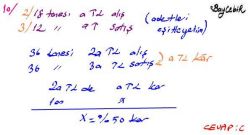 Baycebik
10/ 2/18 tanesi a TL alış (adetleri
3/12 " a TL satış eşitleyelim)
36 tanesi 2a TL alış
36 " 3a TL satış } a TL kar
2a TL de a TL kar
100 x
X = % 50 kar
CEVAP: C